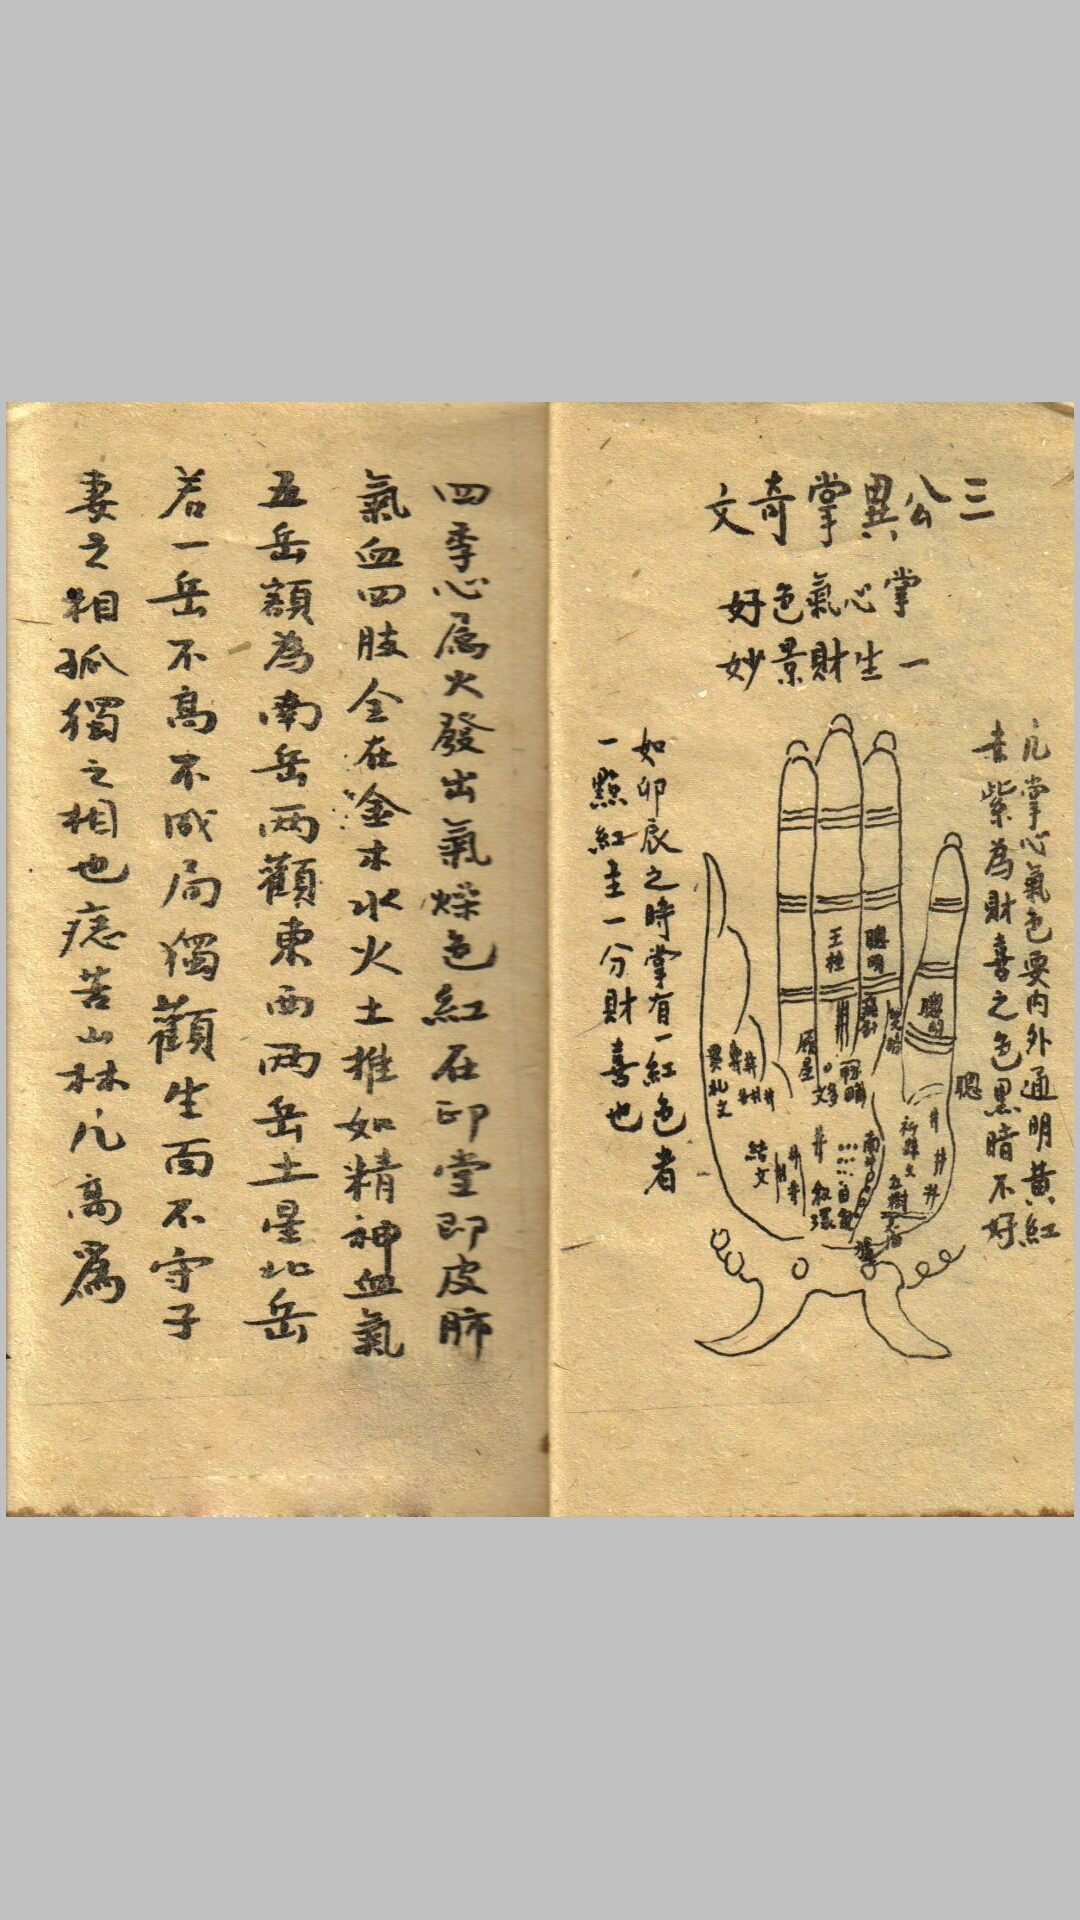 三公異掌奇文
掌心氣色好
一生財景妙
凡掌心氣色要内外通明黄紅
紫為財喜之色黑暗不好
聰明
王柱
聰明
聰
結文
紅環
如卯辰之時掌有一紅色者
一點紅主一分財喜也
四季心属火發出氣燥色紅在印堂即皮肺
氣血四肢全在金木水火土推如精神血氣
五岳額為南岳两顴東西两岳土星北岳
若一岳不高不成局獨顴生面不守子
妻之相孤獨之相也痣苦山林凡高爲